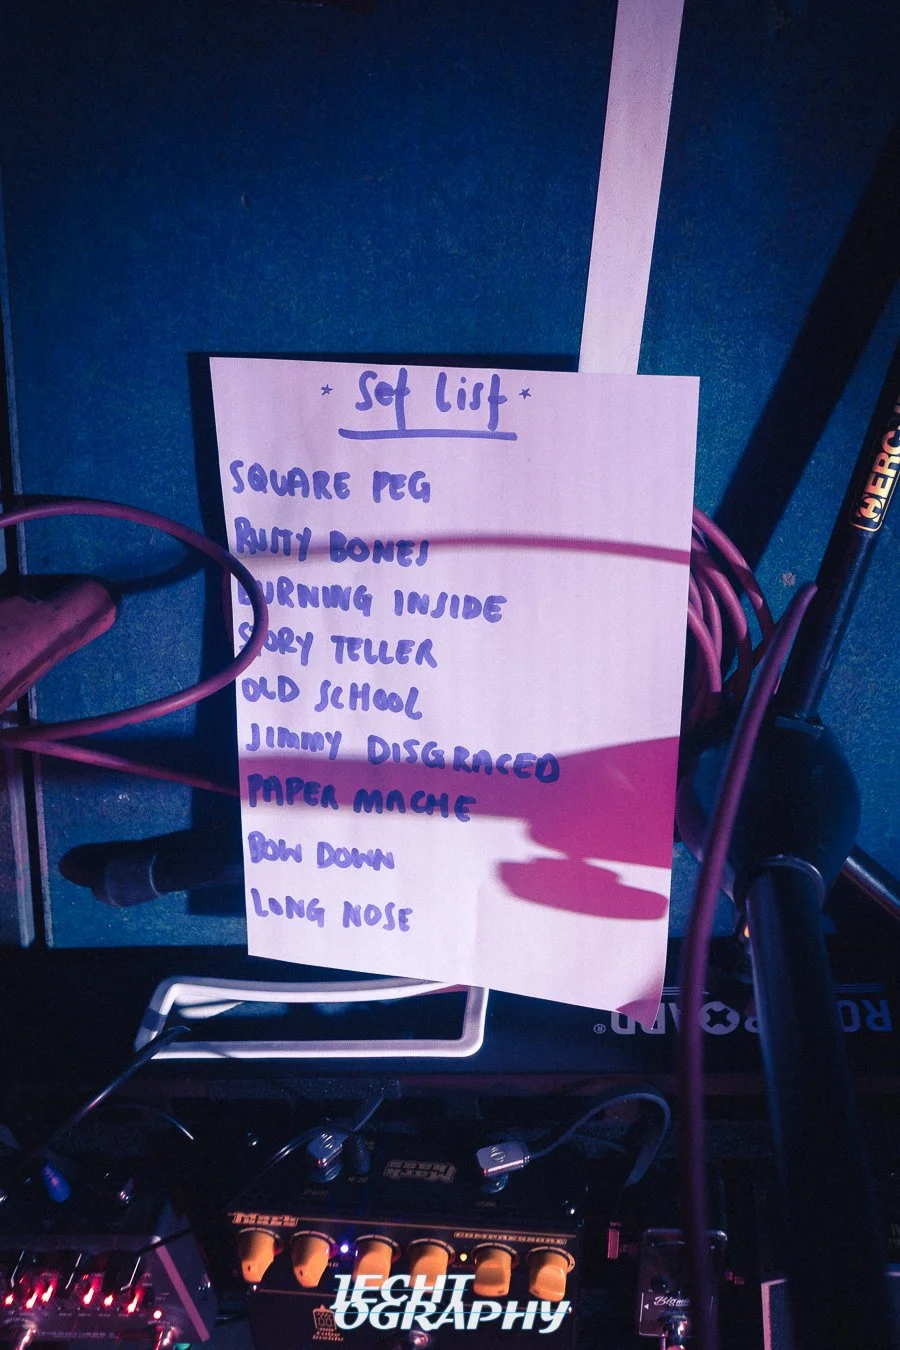 * Set List *
SQUARE PEG
RUSTY BONES
BURNING INSIDE
STORY TELLER
OLD SCHOOL
JIMMY DISGRACED
PAPER MACHE
BOW DOWN
LONG NOSE
HERC
ROADROX
®
Mark
Bass
JECHT
OGRAPHY